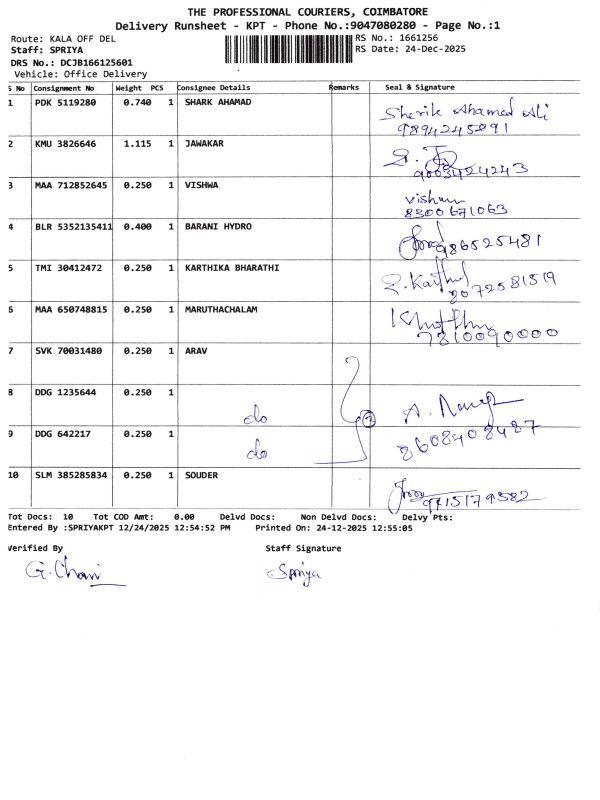 THE PROFESSIONAL COURIERS, COIMBATORE
Delivery Runsheet - KPT - Phone No.:9047080280 - Page No.:1
Route: KALA OFF DEL
RS No.: 1661256
Staff: SPRIYA
RS Date: 24-Dec-2025
DRS No.: DCJB166125601
Vehicle: Office Delivery
S No Consignment No Weight PCS Consignee Details Remarks Seal & Signature
1 PDK 5119280 0.740 1 SHARK AHAMAD Sherik Ahamed Ali
9894245291
2 KMU 3826646 1.115 1 JAWAKAR
9003424243
3 MAA 712852645 0.250 1 VISHWA vishwa
8300671063
4 BLR 5352135411 0.400 1 BARANI HYDRO
986525481
5 TMI 30412472 0.250 1 KARTHIKA BHARATHI
8072581519
6 MAA 650748815 0.250 1 MARUTHACHALAM
7810090000
7 SVK 70031480 0.250 1 ARAV
8 DDG 1235644 0.250 1 do
9 DDG 642217 0.250 1 do 8608408487
10 SLM 385285834 0.250 1 SOUDER
9715179582
Tot Docs: 10 Tot COD Amt: 0.00 Delvd Docs: Non Delvd Docs: Delvy Pts:
Entered By :SPRIYAKPT 12/24/2025 12:54:52 PM Printed On: 24-12-2025 12:55:05
Verified By Staff Signature
Spriya